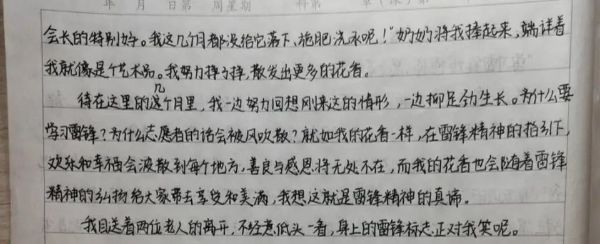 年 月 日第 周星期
会长的特别好。我这几个月都没给它落下，施肥、浇水呢！”奶奶将我捧起来，端详着
我就像是个艺术品。我努力挣了挣，散发出更多的花香。
待在这里的这几个月里，我一边努力回想刚来这的情形，一边卯足劲生长。为什么要
学习雷锋？为什么志愿者的话会被风吹散？就如我的花香一样，在雷锋精神的指引下，
欢乐和幸福会波散到每个地方，善良与感恩将无处不在，而我的花香也会随着雷锋
精神的弘扬给大家带去享受和美满，我想这就是雷锋精神的真谛。
我目送着两位老人的离开，不经意低头一看，身上的雷锋标志正对我笑呢。